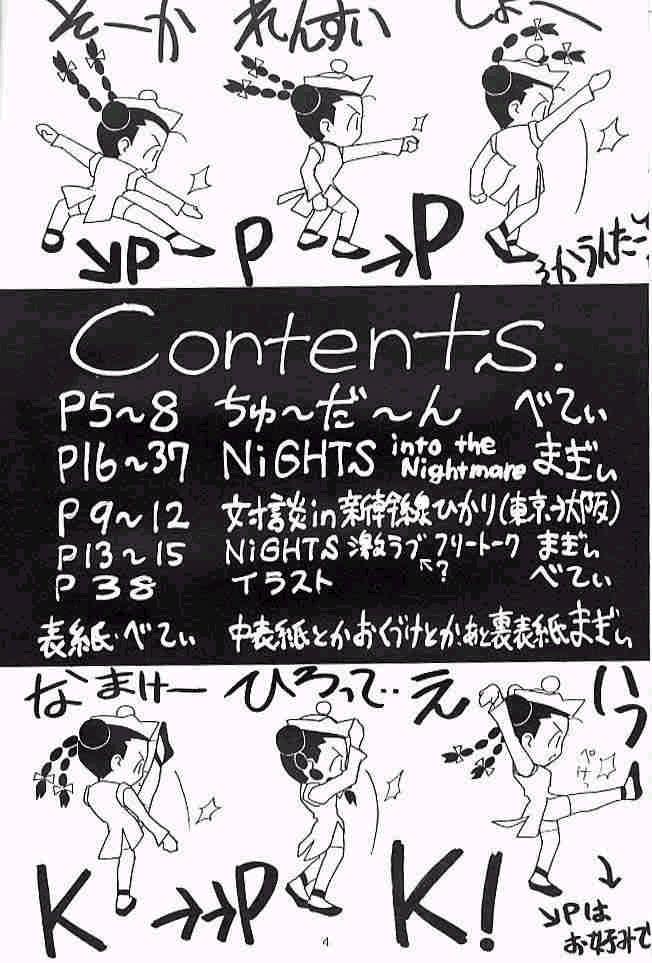 そーか れんすい しょへ
↘P P →P
そかうんたーン
Contents.
P5～8 ちゅ～だ～ん べてぃ
P16～37 NiGHTS into the Nightmare まぎぃ
P9～12 対談in新幹線ひかり(東京→大阪)
P13～15 NiGHTS 激ラブ フリートーク まぎぃ
↖?
P38 イラスト べてぃ
表紙・べてぃ 中表紙とかおくづけとか、あと裏表紙まぎぃ
なまけー ひろって・・ え いっ
ぺけっ
K →→P K!
↘Pは
お好みで
4